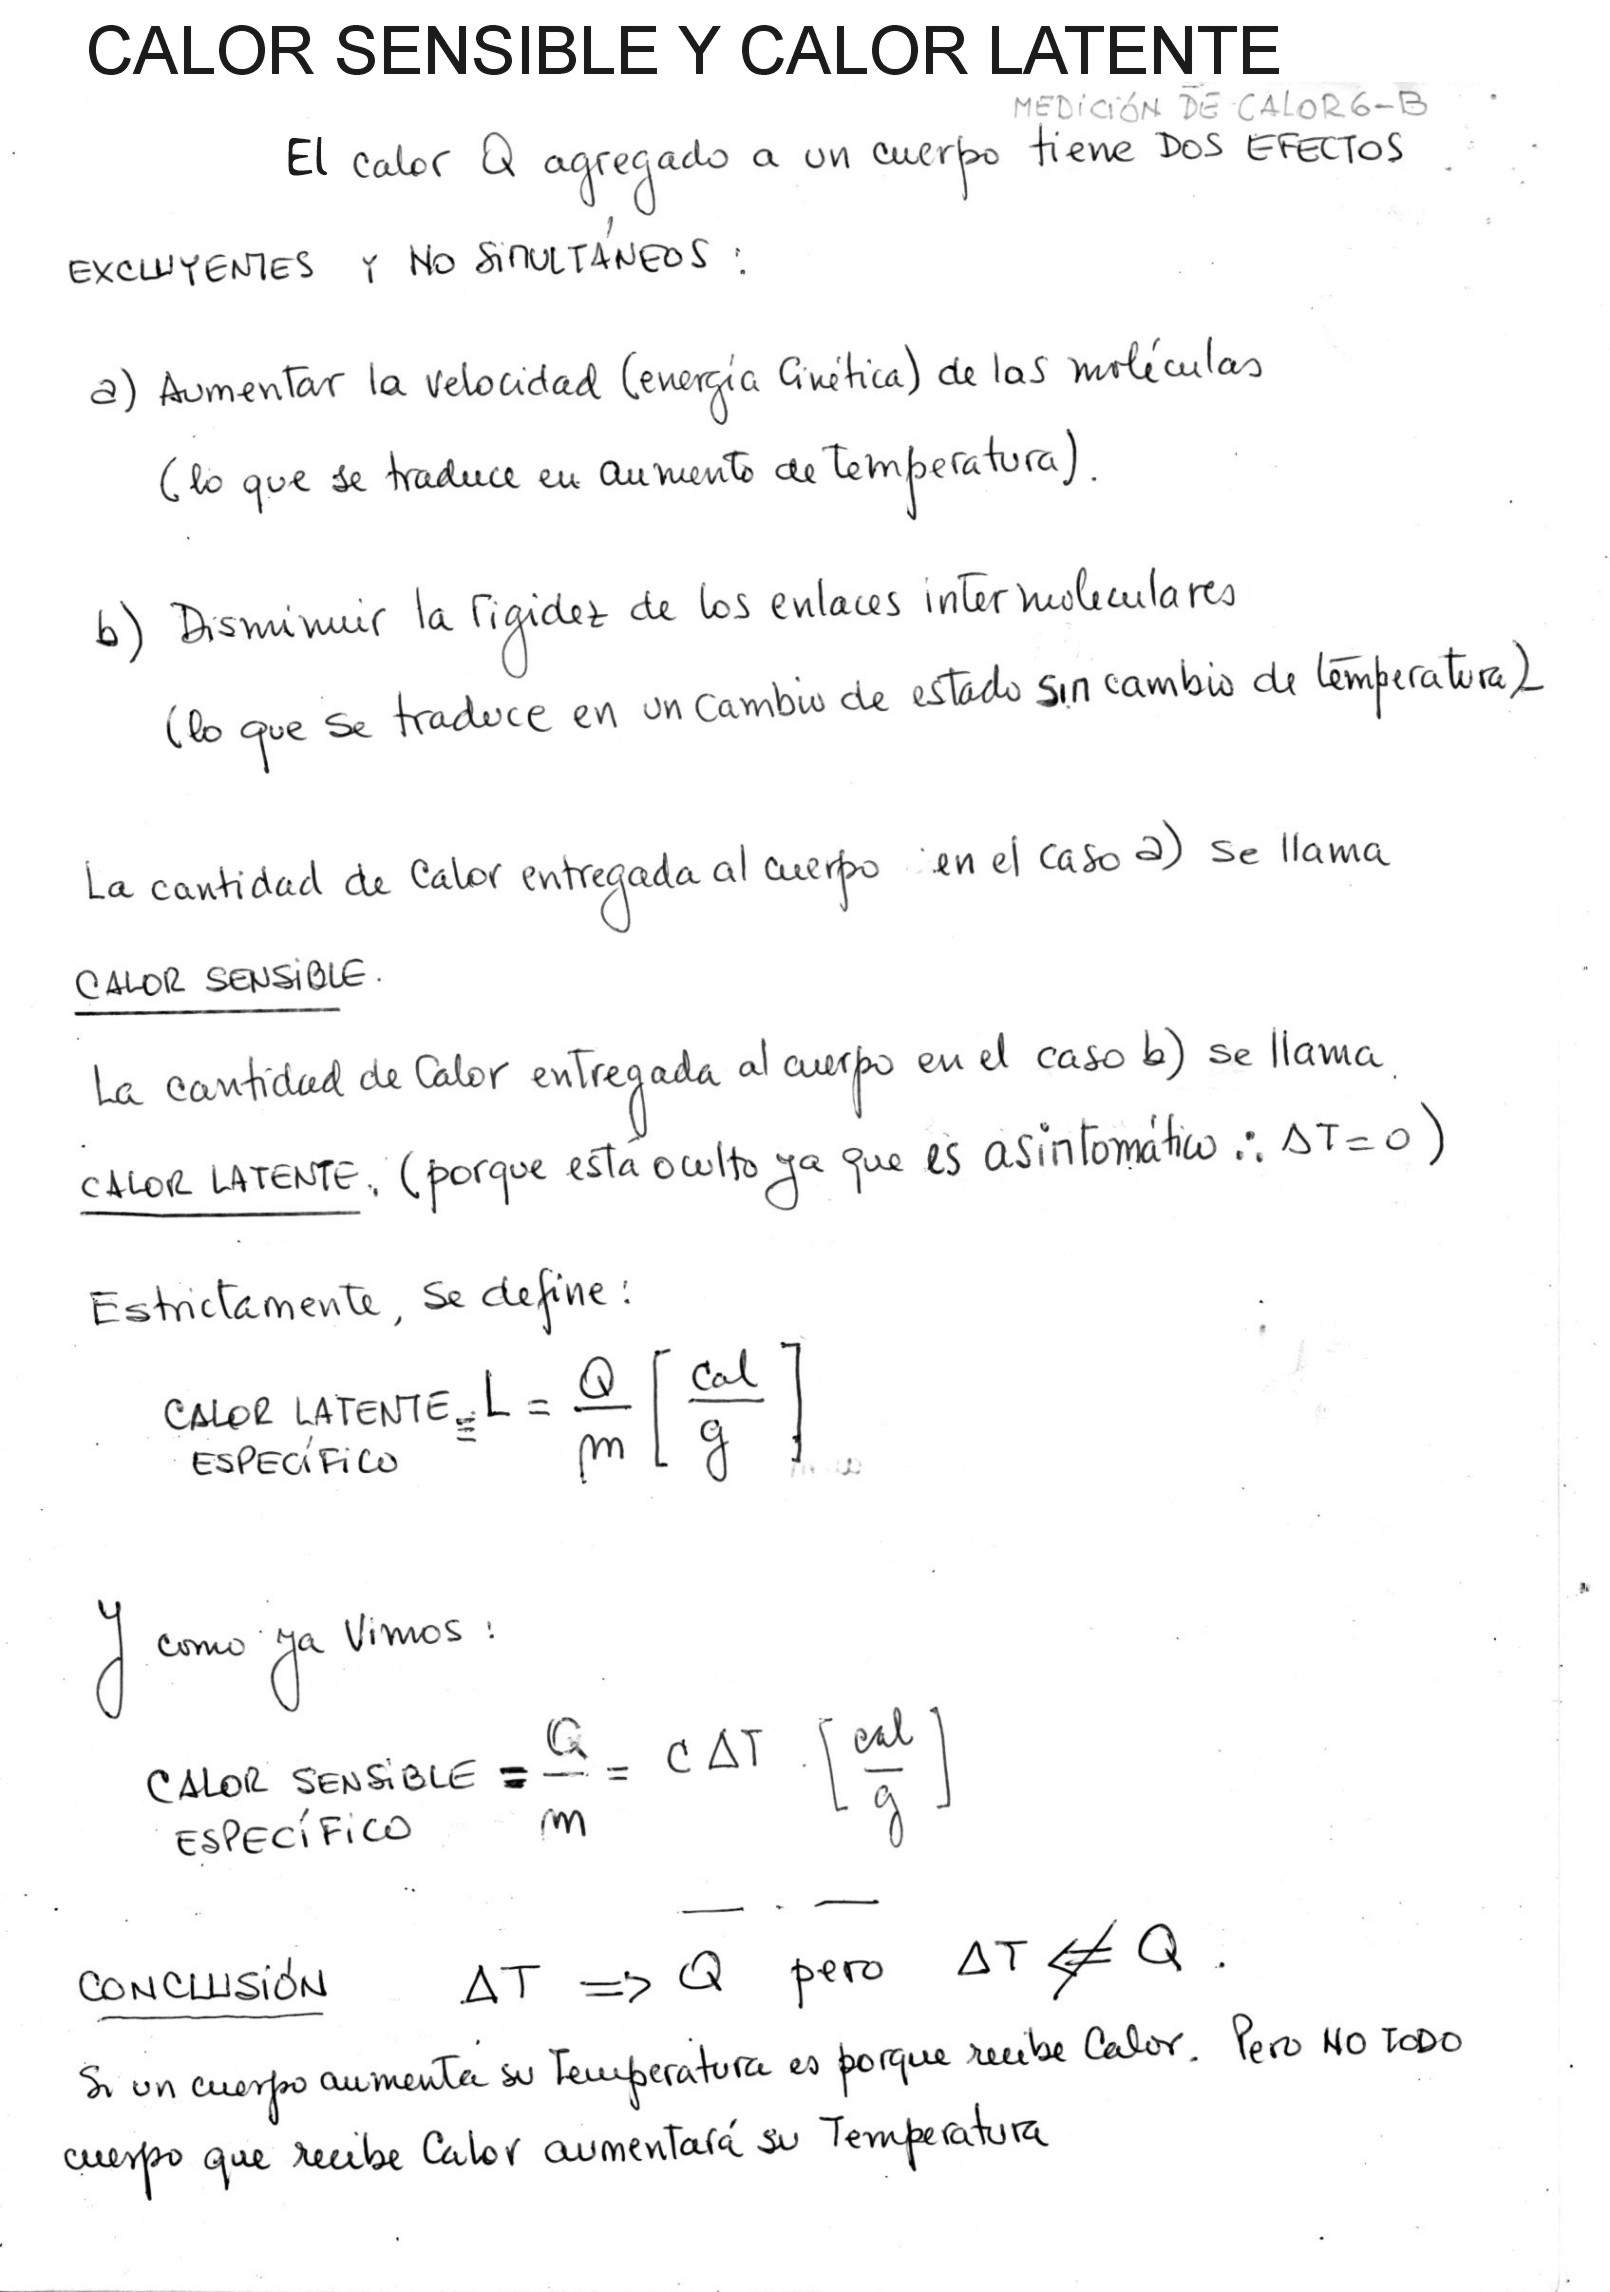 CALOR SENSIBLE Y CALOR LATENTE
MEDICIÓN DE CALOR 6-B
El calor Q agregado a un cuerpo tiene DOS EFECTOS
EXCLUYENTES Y NO SIMULTÁNEOS:
a) Aumentar la velocidad (energía Cinética) de las moléculas
(lo que se traduce en aumento de temperatura).
b) Disminuir la rigidez de los enlaces intermoleculares
(lo que se traduce en un cambio de estado sin cambio de temperatura)
La cantidad de Calor entregada al cuerpo en el caso a) se llama
CALOR SENSIBLE.
La cantidad de Calor entregada al cuerpo en el caso b) se llama
CALOR LATENTE. (porque está oculto ya que es asintomático ∴ ΔT=0)
Estrictamente, se define:
CALOR LATENTE ESPECÍFICO ≡ L = Q/m [cal/g]
Y como ya Vimos:
CALOR SENSIBLE ESPECÍFICO = Q/m = C ΔT . [cal/g]
CONCLUSIÓN ΔT => Q pero ΔT ⇍ Q.
Si un cuerpo aumenta su Temperatura es porque recibe Calor. Pero NO TODO
cuerpo que recibe Calor aumentará su Temperatura